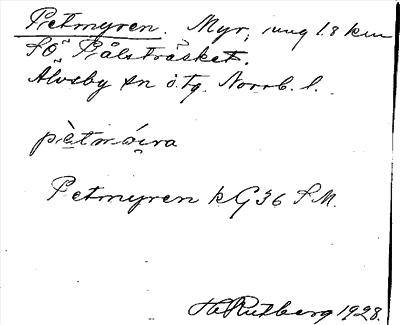 Petmyren. Myr, ung 1.8 km
SÖ Pålsträsket.
Älvsby sn ö. tg. Norrb. l.
pètmỳra
Petmyren kG36 S.M.
H. Rutberg 1928.